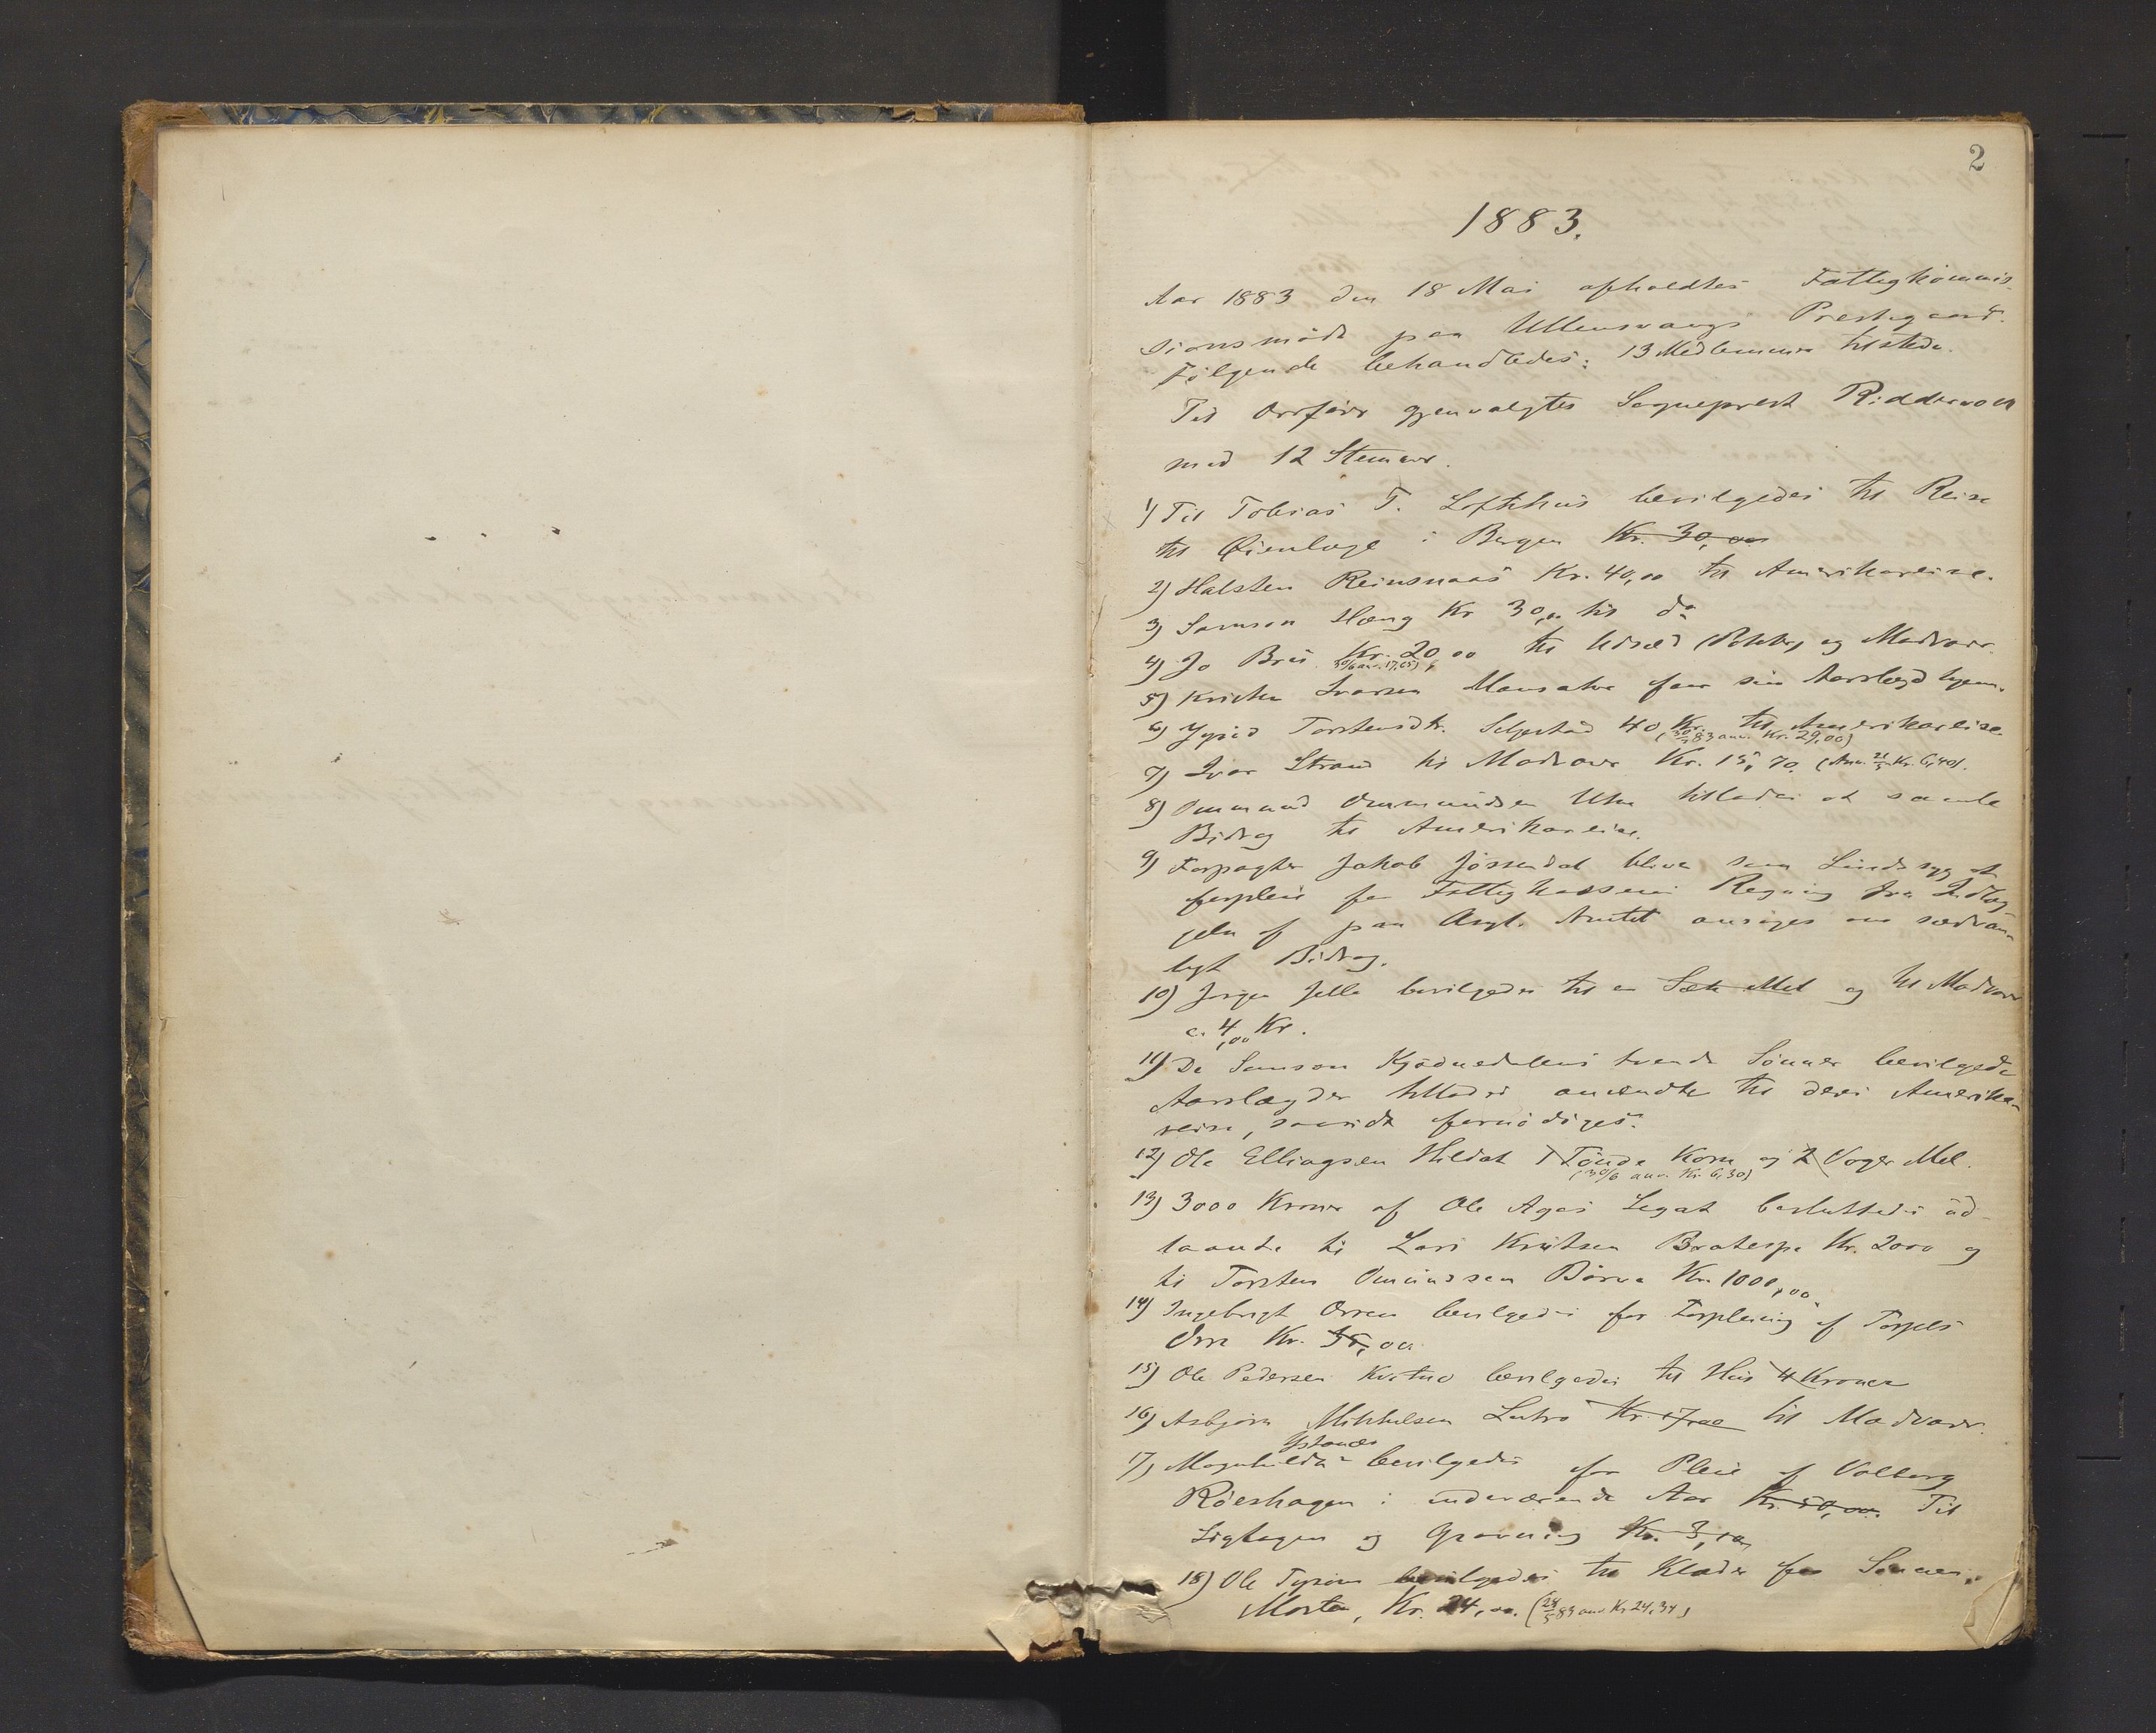 2
1883.
Aar 1883 den 18 Mai afholdtes Fattigkommis-
sionsmöde paa Ullensvangs Prestegaard.
Følgende behandledes: 13 Medlemmer tilstede.
Til Orrfører gjenvalgtes Sogneprest Riddervold
med 12 Stemmer.
1) Til Tobias T. Lofthus bevilgedes til Reise
til Øienlæge i Bergen Kr. 30,00
2) Halsten Reinsnaas Kr. 40,00 til Amerikareise.
3) Samson Haug Kr 30,00 til do
4) Jo Bræ Kr. 20,00 til Udsæd (Poteter) og Madvarer.
(30/6 anv. 17,05)
5) Ivarsen Mannsaker faar sin Aarslægd hjem.
6) Torstensdtr. Seljestad 40 Kr. til Amerikareise
(30/5 83 anv. Kr. 29,00)
7) Ivar Strand til Madvarer Kr. 15,70. (Anv. 21/5 Kr. 6,40).
8) Ommund Ommundsen Utne tillades at samle
Bidrag til Amerikareise.
9) Forpagter Jakob Jøssendal bliver som Sindssyg at
forpleie for Fattigkassens Regning fra Indlæg-
gelse af paa Asyl. Amtet ansøges om sædvan-
ligt Bidrag.
10) Jørgen Jelle bevilgedes til en Sæk Mel og til Madvarer
c. 4,00 Kr.
11) De Samson Kjødnedalens tvende Sönner bevilgede
Aarslægder tillades anvendte til deres Amerika-
reise, saavidt fornødiges.
12) Ole Elliagsen Hildal 1 Tönde Korn og 2 Voger Mel.
(30/6 anv. Kr. 6,30)
13) 3000 Kroner af Ole Agas Legat besluttedes ud-
laante til Lars Knutsen Bratespe Kr. 2000 og
til Torsten Omundsen Börve Kr. 1000,00.
14) Ingebrigt Orren bevilgedes for Forpleining af Torgels
Orre Kr. 35,00
15) Ole Pedersen Kvitno bevilgedes til Hus 4 Kroner
16) Asbjörn Mikkelsen Lutro Kr. til Madvarer.
17) Magnhilda Ystanæs bevilgedes for Pleie af Valborg
Röeshagen i indeværende Aar Kr. 50,00. Til
Liglagen og Gravning Kr. 3,00
18) Ole bevilgedes til Klæder for Sønnen
Morten, Kr. 24,00. (24/5 83 anv. Kr 24,34)